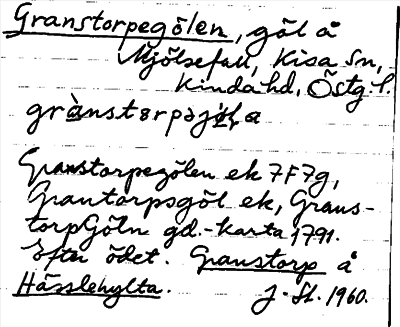 Granstorpegölen, göl å
Mjölsefall, Kisa sn,
Kinda hd, Östg.l.
Granstorpegölen ek 7F7g,
Grantorpsgöl ek, Grans-
torpGöln gd.-karta 1791.
Efter ödet. Granstorp å
Hässlehylta. J. St. 1960.